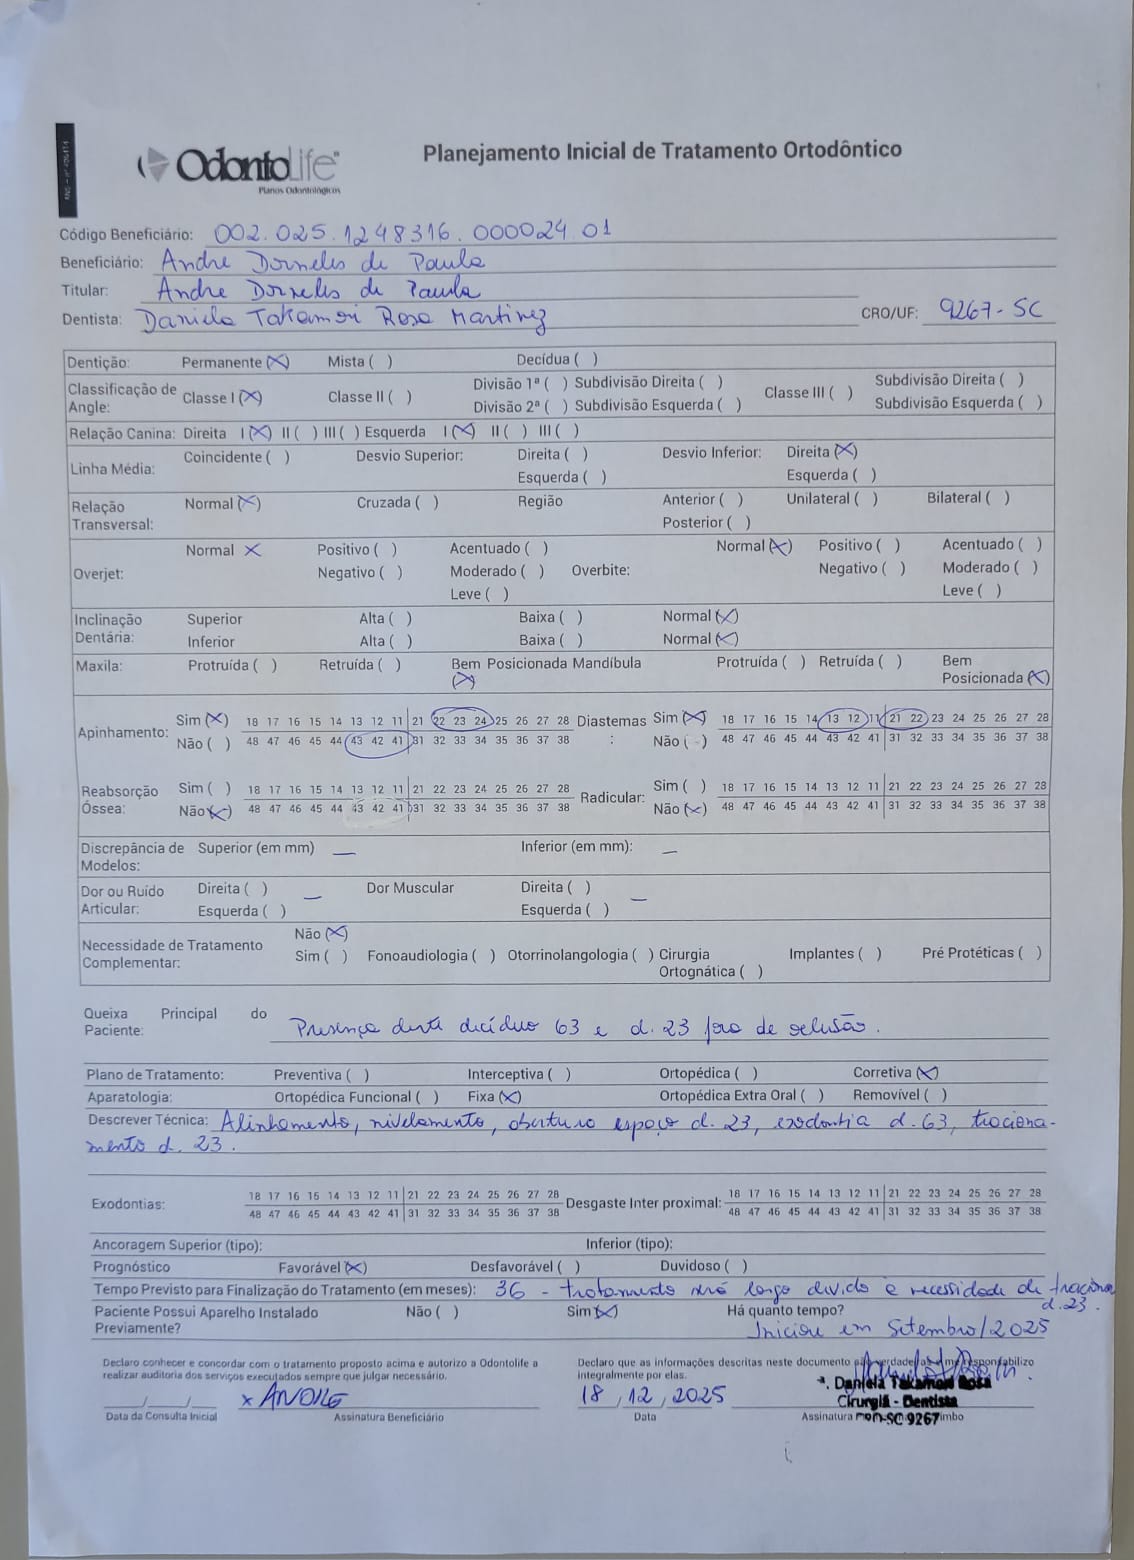 OdontoLife
Planos Odontológicos
Planejamento Inicial de Tratamento Ortodôntico
Código Beneficiário: 002.025.1248316.000024.01
Beneficiário: Andre Dorneles de Paula
Titular: Andre Dorneles de Paula
Dentista: Daniela Takamori Rosa Martinez CRO/UF: 9267-SC
Dentição: Permanente (X) Mista ( ) Decídua ( )
Classificação de Angle: Classe I (X) Classe II ( ) Divisão 1ª ( ) Subdivisão Direita ( ) Classe III ( ) Subdivisão Direita ( )
Divisão 2ª ( ) Subdivisão Esquerda ( ) Subdivisão Esquerda ( )
Relação Canina: Direita I (X) II ( ) III ( ) Esquerda I (X) II ( ) III ( )
Linha Média: Coincidente ( ) Desvio Superior: Direita ( ) Desvio Inferior: Direita (X)
Esquerda ( ) Esquerda ( )
Relação Transversal: Normal (X) Cruzada ( ) Região Anterior ( ) Unilateral ( ) Bilateral ( )
Posterior ( )
Overjet: Normal X Positivo ( ) Acentuado ( ) Normal (X) Positivo ( ) Acentuado ( )
Negativo ( ) Moderado ( ) Overbite: Negativo ( ) Moderado ( )
Leve ( ) Leve ( )
Inclinação Dentária: Superior Alta ( ) Baixa ( ) Normal (X)
Inferior Alta ( ) Baixa ( ) Normal (X)
Maxila: Protruída ( ) Retruída ( ) Bem Posicionada (X) Mandíbula Protruída ( ) Retruída ( ) Bem Posicionada (X)
Apinhamento: Sim (X) 18 17 16 15 14 13 12 11 21 22 23 24 25 26 27 28 Diastemas : Sim (X) 18 17 16 15 14 13 12 11 21 22 23 24 25 26 27 28
Não ( ) 48 47 46 45 44 43 42 41 31 32 33 34 35 36 37 38 Não ( ) 48 47 46 45 44 43 42 41 31 32 33 34 35 36 37 38
Reabsorção Óssea: Sim ( ) 18 17 16 15 14 13 12 11 21 22 23 24 25 26 27 28 Radicular: Sim ( ) 18 17 16 15 14 13 12 11 21 22 23 24 25 26 27 28
Não (X) 48 47 46 45 44 43 42 41 31 32 33 34 35 36 37 38 Não (X) 48 47 46 45 44 43 42 41 31 32 33 34 35 36 37 38
Discrepância de Modelos: Superior (em mm) — Inferior (em mm): —
Dor ou Ruído Articular: Direita ( ) — Dor Muscular Direita ( ) —
Esquerda ( ) Esquerda ( )
Necessidade de Tratamento Complementar: Não (X)
Sim ( ) Fonoaudiologia ( ) Otorrinolangologia ( ) Cirurgia Ortognática ( ) Implantes ( ) Pré Protéticas ( )
Queixa Principal do Paciente: Presença dente decíduo 63 e d. 23 fora de oclusão.
Plano de Tratamento: Preventiva ( ) Interceptiva ( ) Ortopédica ( ) Corretiva (X)
Aparatologia: Ortopédica Funcional ( ) Fixa (X) Ortopédica Extra Oral ( ) Removível ( )
Descrever Técnica: Alinhamento, nivelamento, abertura espaço d. 23, exodontia d. 63, traciona-
mento d. 23.
Exodontias: 18 17 16 15 14 13 12 11 21 22 23 24 25 26 27 28 Desgaste Inter proximal: 18 17 16 15 14 13 12 11 21 22 23 24 25 26 27 28
48 47 46 45 44 43 42 41 31 32 33 34 35 36 37 38 48 47 46 45 44 43 42 41 31 32 33 34 35 36 37 38
Ancoragem Superior (tipo): Inferior (tipo):
Prognóstico Favorável (X) Desfavorável ( ) Duvidoso ( )
Tempo Previsto para Finalização do Tratamento (em meses): 36 - tratamento será longo devido a necessidade de traciona
d.23.
Paciente Possui Aparelho Instalado Previamente? Não ( ) Sim (X) Há quanto tempo?
Iniciou em Setembro/2025
Declaro conhecer e concordar com o tratamento proposto acima e autorizo a Odontolife a
realizar auditoria dos serviços executados sempre que julgar necessário.
Declaro que as informações descritas neste documento são verdadeiras e me responsabilizo
integralmente por elas.
__/__/__ x ANDRE 18, 12, 2025
Daniela Takamori Rosa
Cirurgiã - Dentista
CRO-SC 9267
Data da Consulta Inicial Assinatura Beneficiário Data Assinatura